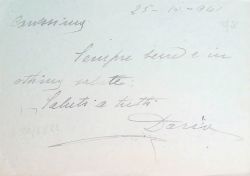 25-IV-941
Carissimi
Sempre bene e in
ottima salute.
Saluti a tutti
Dario